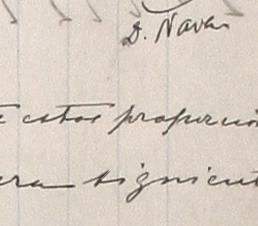 D. Navas
estas proporcio
era siguient